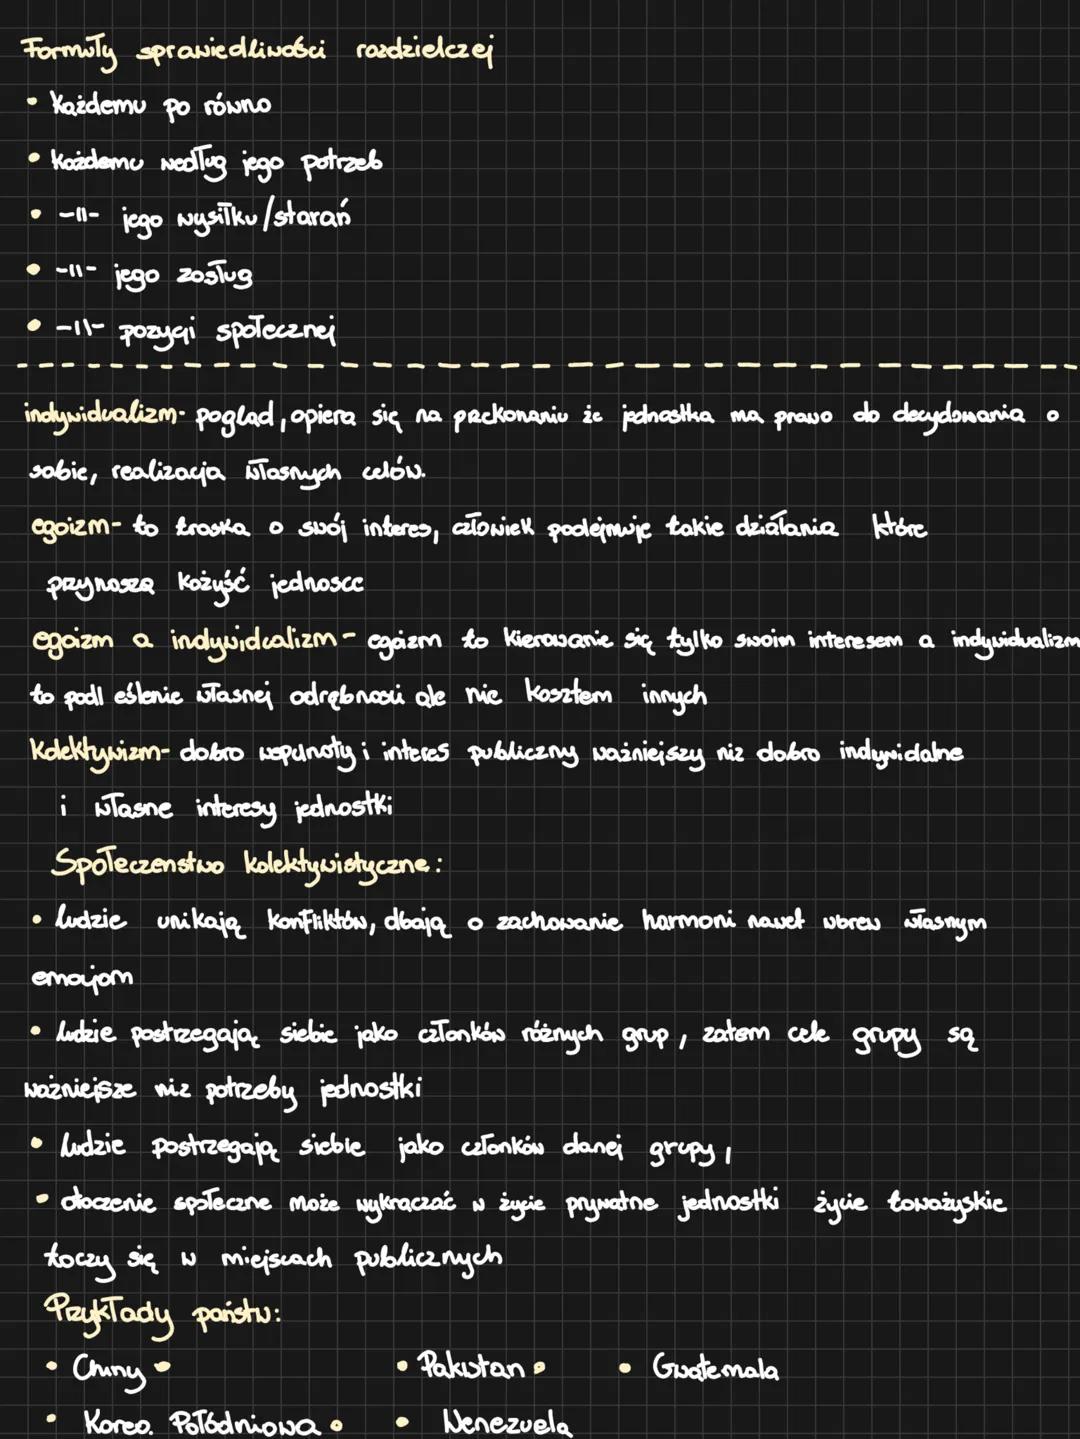 Formuły sprawiedliwości rozdzielczej
• Każdemu po równo
• Każdemu według jego potrzeb
• -||- jego wysiłku/starań
• -||- jego zasług
• -||- pozycji społecznej
indywidualizm- pogląd, opiera się na przekonaniu że jednostka ma prawo do decydowania o
sobie, realizacja własnych celów.
egoizm- to troska o swój interes, człowiek podejmuje takie działania które
przynoszą kożyść jednosce
egoizm a indywidualizm- egoizm to kierowanie się tylko swoim interesem a indywidualizm
to podkreślenie własnej odrębności ale nie kosztem innych
Kolektywizm- dobro wspólnoty i interes publiczny ważniejszy niz dobro indywidalne
i własne interesy jednostki
Społeczenstwo kolektywistyczne:
• ludzie unikają konfliktów, dbają o zachowanie harmoni nawet wbrew własnym
emocjom
• ludzie postrzegają siebie jako członków różnych grup, zatem cele grupy są
ważniejsze niz potrzeby jednostki
• ludzie postrzegają siebie jako członków danej grupy,
• otoczenie społeczne może wykraczać w życie prywatne jednostki życie toważyskie
toczy się w miejscach publicznych
Przykłady państw:
• Chiny • • Pakistan • • Gwatemala
• Korea Połódniowa • • Wenezuela